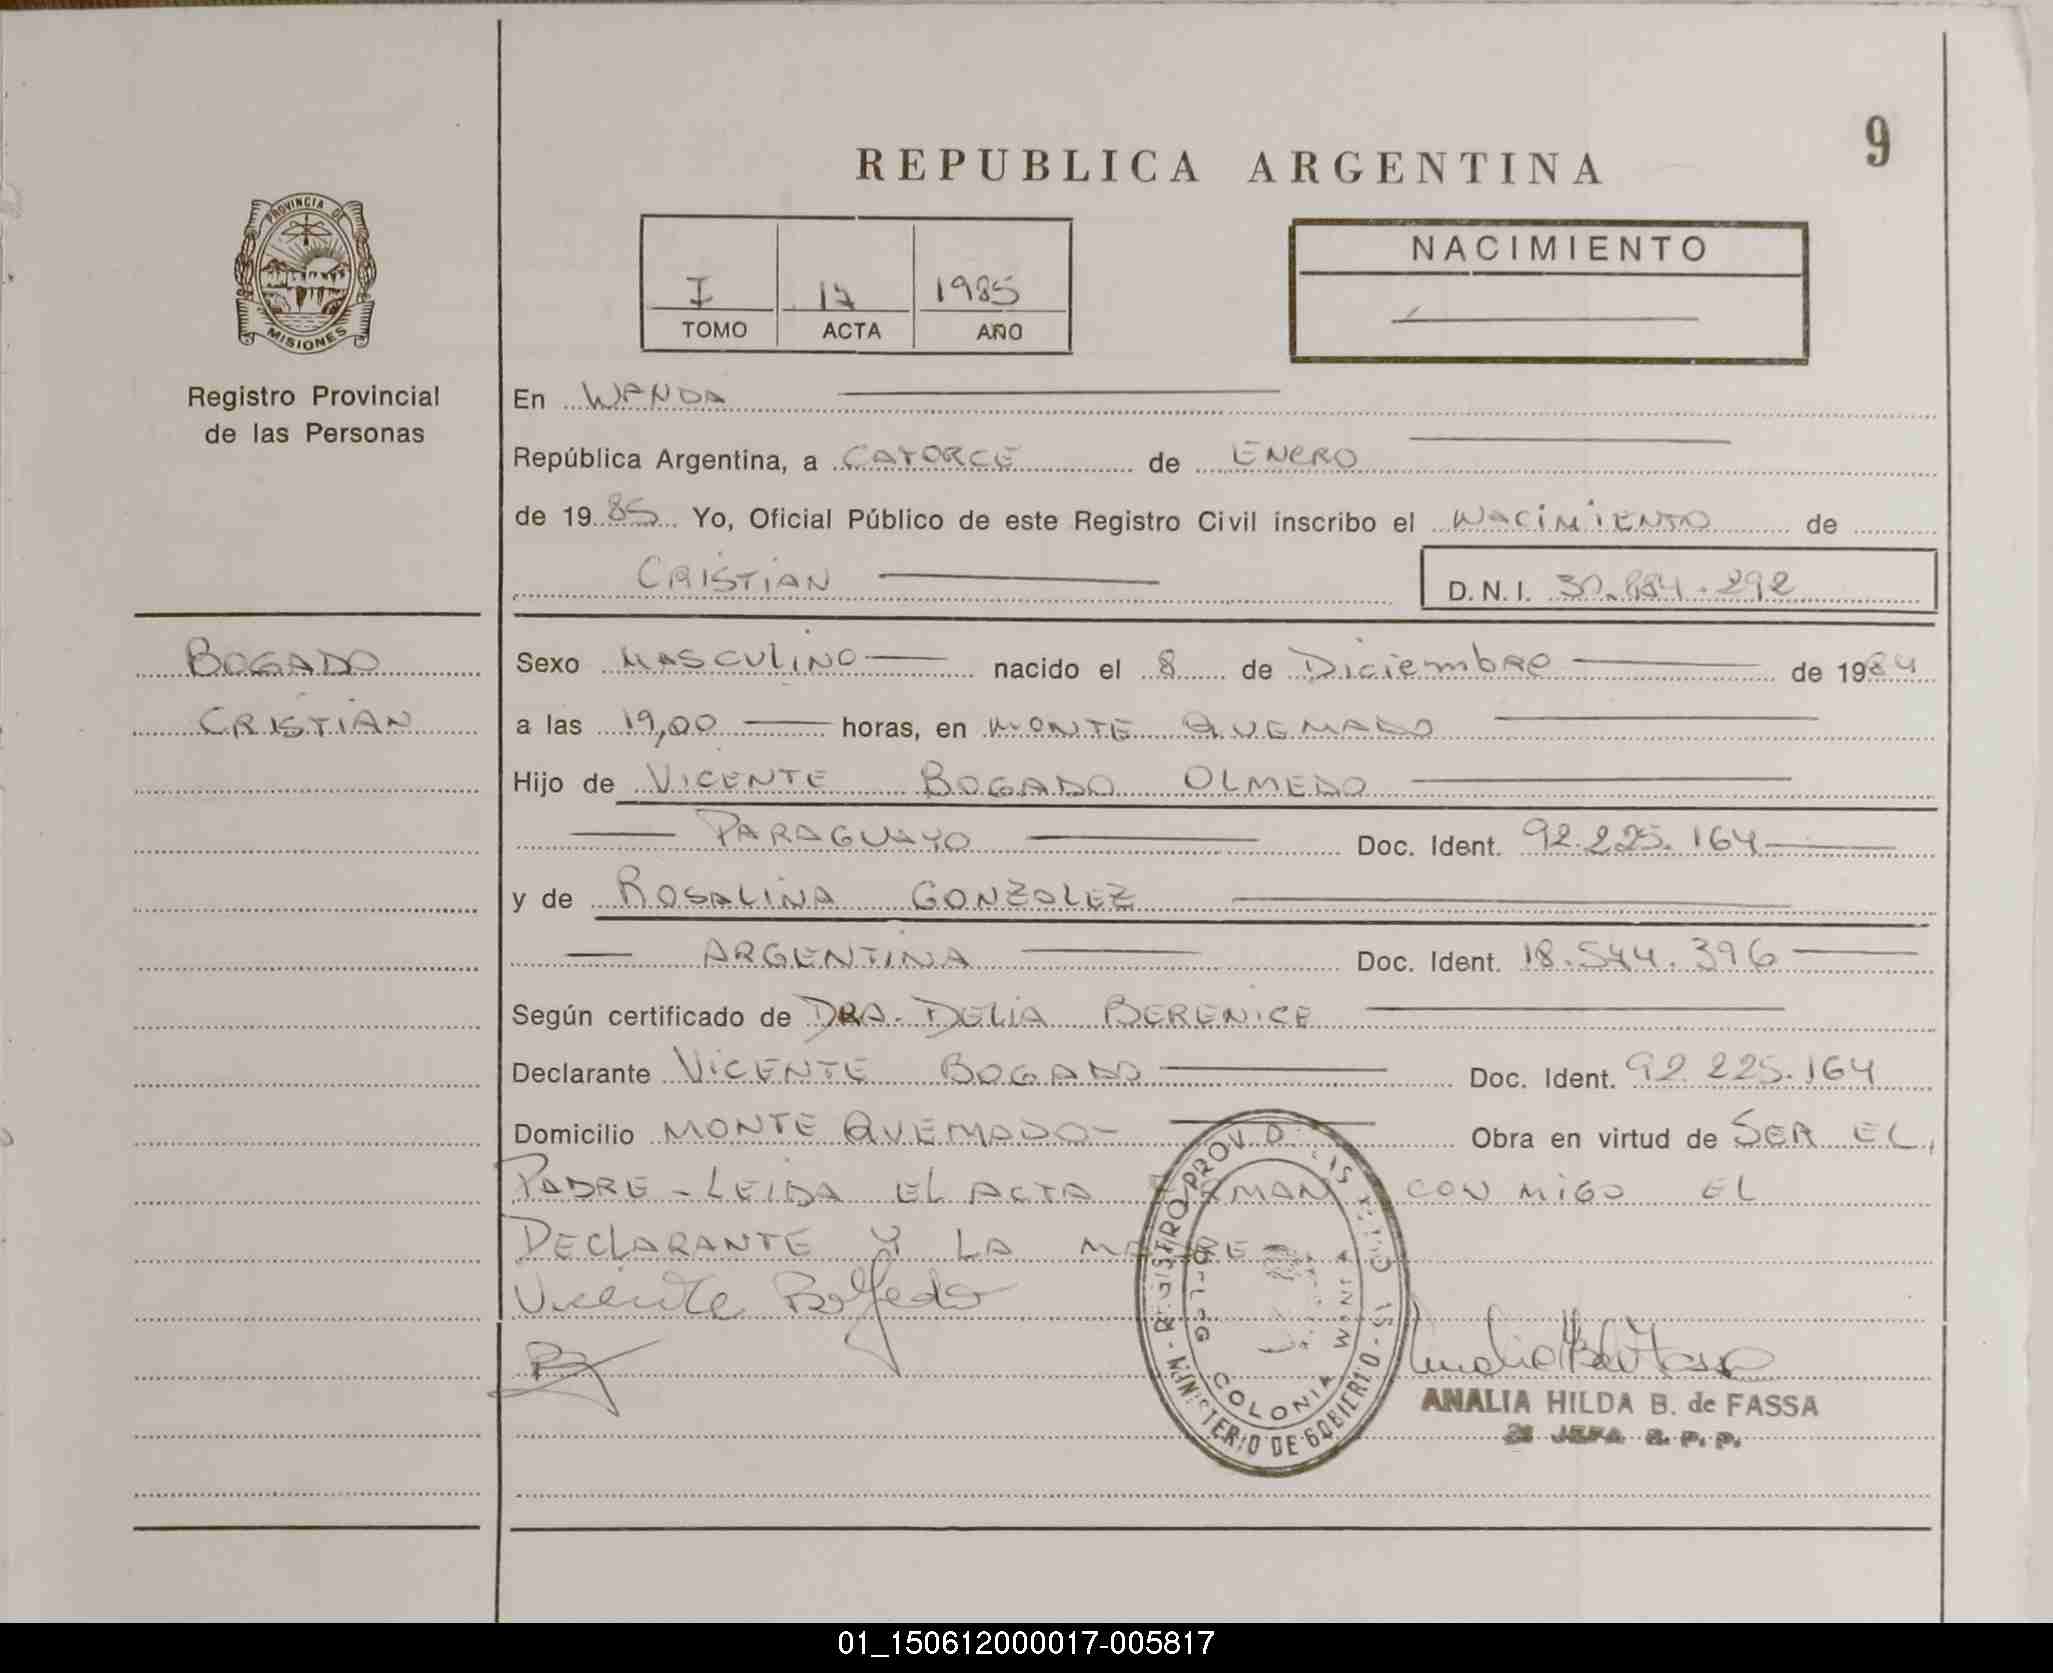 9
REPUBLICA ARGENTINA
PROVINCIA DE
MISIONES
Registro Provincial
de las Personas
I 17 1985
TOMO ACTA AÑO
NACIMIENTO
En WANDA
República Argentina, a CATORCE de ENERO
de 1985 Yo, Oficial Público de este Registro Civil inscribo el NACIMIENTO de
CRISTIAN D.N.I. 30.884.292
BOGADO
CRISTIAN
Sexo MASCULINO nacido el 8 de Diciembre de 1984
a las 19,00 horas, en MONTE QUEMADO
Hijo de VICENTE BOGADO OLMEDO
PARAGUAYO Doc. Ident. 92.225.164
y de ROSALINA GONZALEZ
ARGENTINA Doc. Ident. 18.544.396
Según certificado de DRA. DELIA BERENICE
Declarante VICENTE BOGADO Doc. Ident. 92.225.164
Domicilio MONTE QUEMADO- Obra en virtud de SER EL
PADRE - LEIDA EL ACTA FIRMAN CON MIGO EL
DECLARANTE Y LA MADRE
Vicente
COLONIA WANDA
MINISTERIO DE GOBIERNO
ANALIA HILDA B. de FASSA
JEFA R. P. P.
01_150612000017-005817